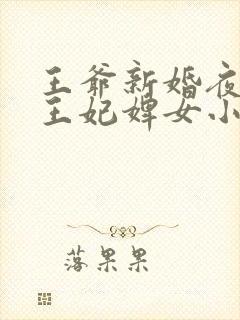 王爷新婚夜
王妃婢女小
落果果